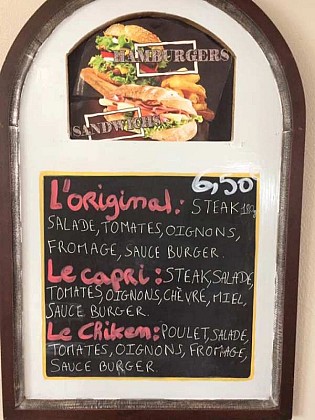 HAMBURGERS
SANDWICHS
6,50
L'original: STEAK 180g
SALADE, TOMATES, OIGNONS,
FROMAGE, SAUCE BURGER.
Le capri: STEAK, SALADE,
TOMATES, OIGNONS, CHÈVRE, MIEL,
SAUCE BURGER.
Le Chiken: POULET, SALADE,
TOMATES, OIGNONS, FROMAGE,
SAUCE BURGER.